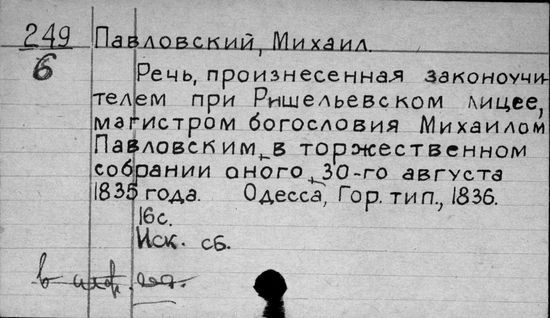 249 Павловский, Михаил.
6
Речь, произнесенная законоучи-
телем при Ришельевском лицее,
магистром богословия Михаилом
Павловским, в торжественном
собрании оного, 30-го августа
1835 года. Одесса, Гор. тип., 1836.
16с.
Иск. сб.
в